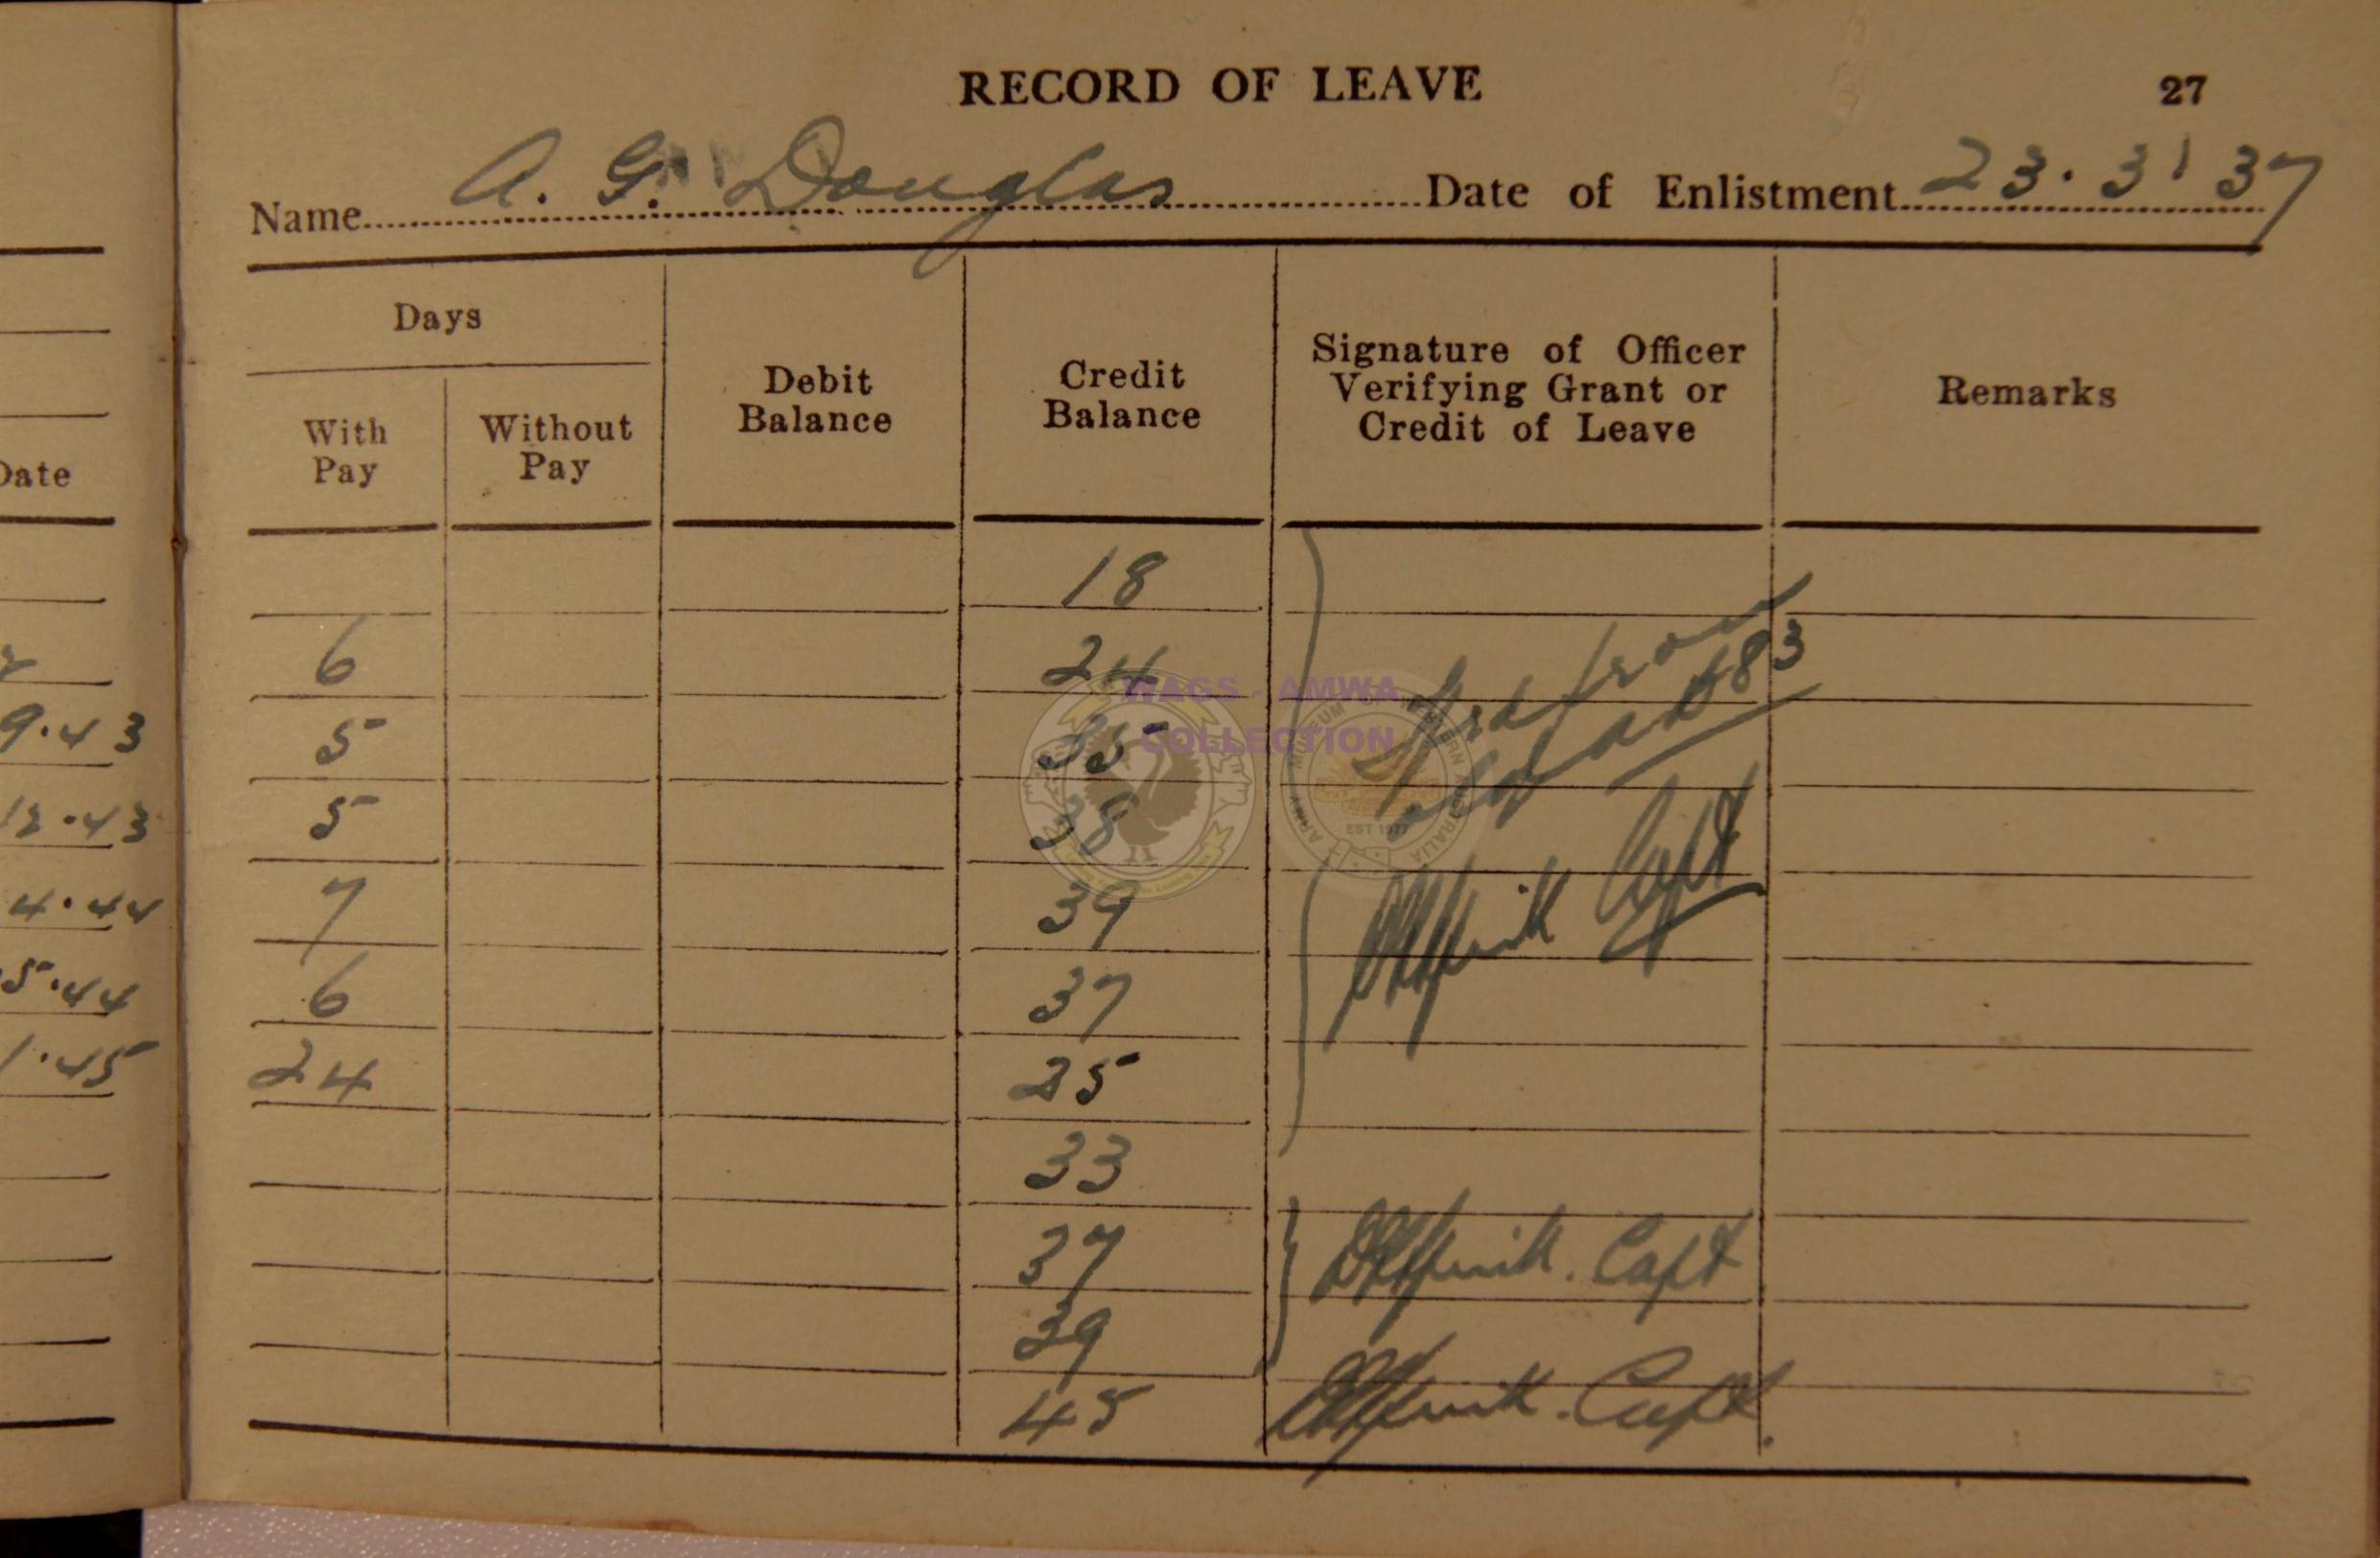 RECORD OF LEAVE 27
Name A. G. Douglas Date of Enlistment 23.3.37
Days
With Pay
Without Pay
Debit Balance
Credit Balance
Signature of Officer
Verifying Grant or
Credit of Leave
Remarks
Date
18
6 24
9.43 5 35
12.43 5 38
4.44 7 39
5.44 6 37
1.45 24 25
33
37
39
45
from
old AAB 83
Capt
Capt
Capt.
WAGS - AMWA
COLLECTION
ARMY MUSEUM OF WESTERN AUSTRALIA
EST 1977